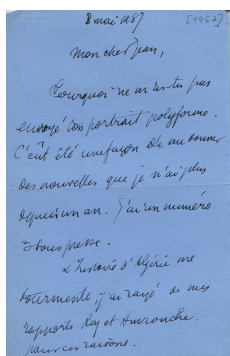 8 mai 1957 [1957]
Mon cher Jean,
Pourquoi ne m'as tu pas
envoyé ton portrait polyforme.
C'eût été une façon de me donner
des nouvelles que je n'ai plus
depuis un an. J'ai un numéro
sous presse.
L'histoire d'Algérie me
tourmente, j'ai rayé de mes
rapports Roy et Amrouche.
pour ces raisons.